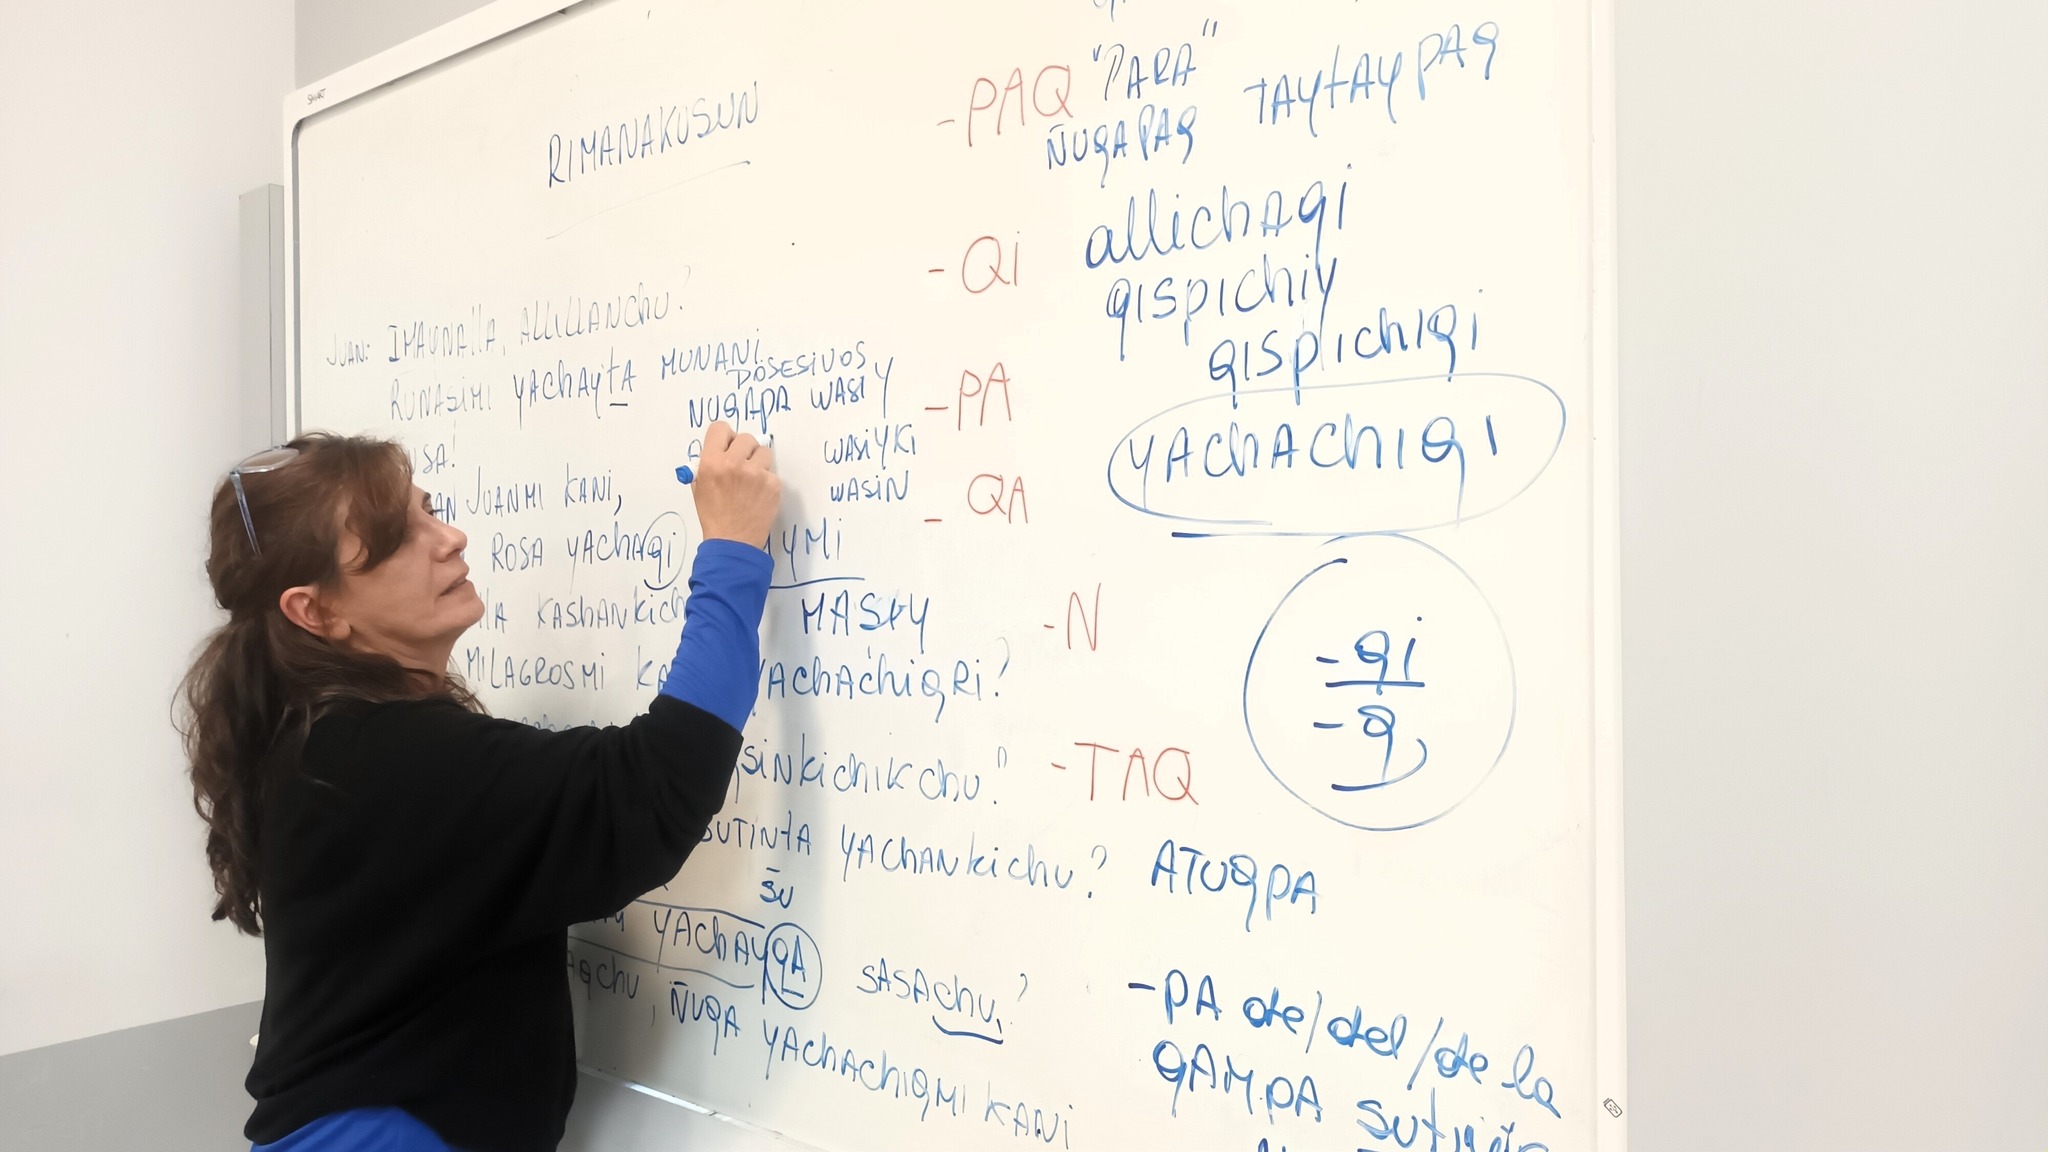 SMART
RIMANAKUSUN
JUAN: IMAYNALLA, ALLILLANCHU?
RUNASIMI YACHAYTA MUNANI
POSESIVOS
ÑUQAPA WASIY
WASIYKI
JUANMI KANI,
WASIN
ROSA YACHAQI
KASHANKICH
MASIY
MILAGROSMI
YACHACHIQRI?
SINKICHIKCHU?
SUTINTA YACHANKICHU?
SU
YACHAYQA
SASACHU?
ÑUQA YACHACHIQMI KANI
-PAQ "PARA" TAYTAYPAQ
ÑUQAPAQ
-Qi allichaqi
qispichiy
qispichiqi
-PA
YACHACHIQI
-QA
-N
-qi
-q
-TAQ
ATUQPA
-PA de/del/de la
QAMPA